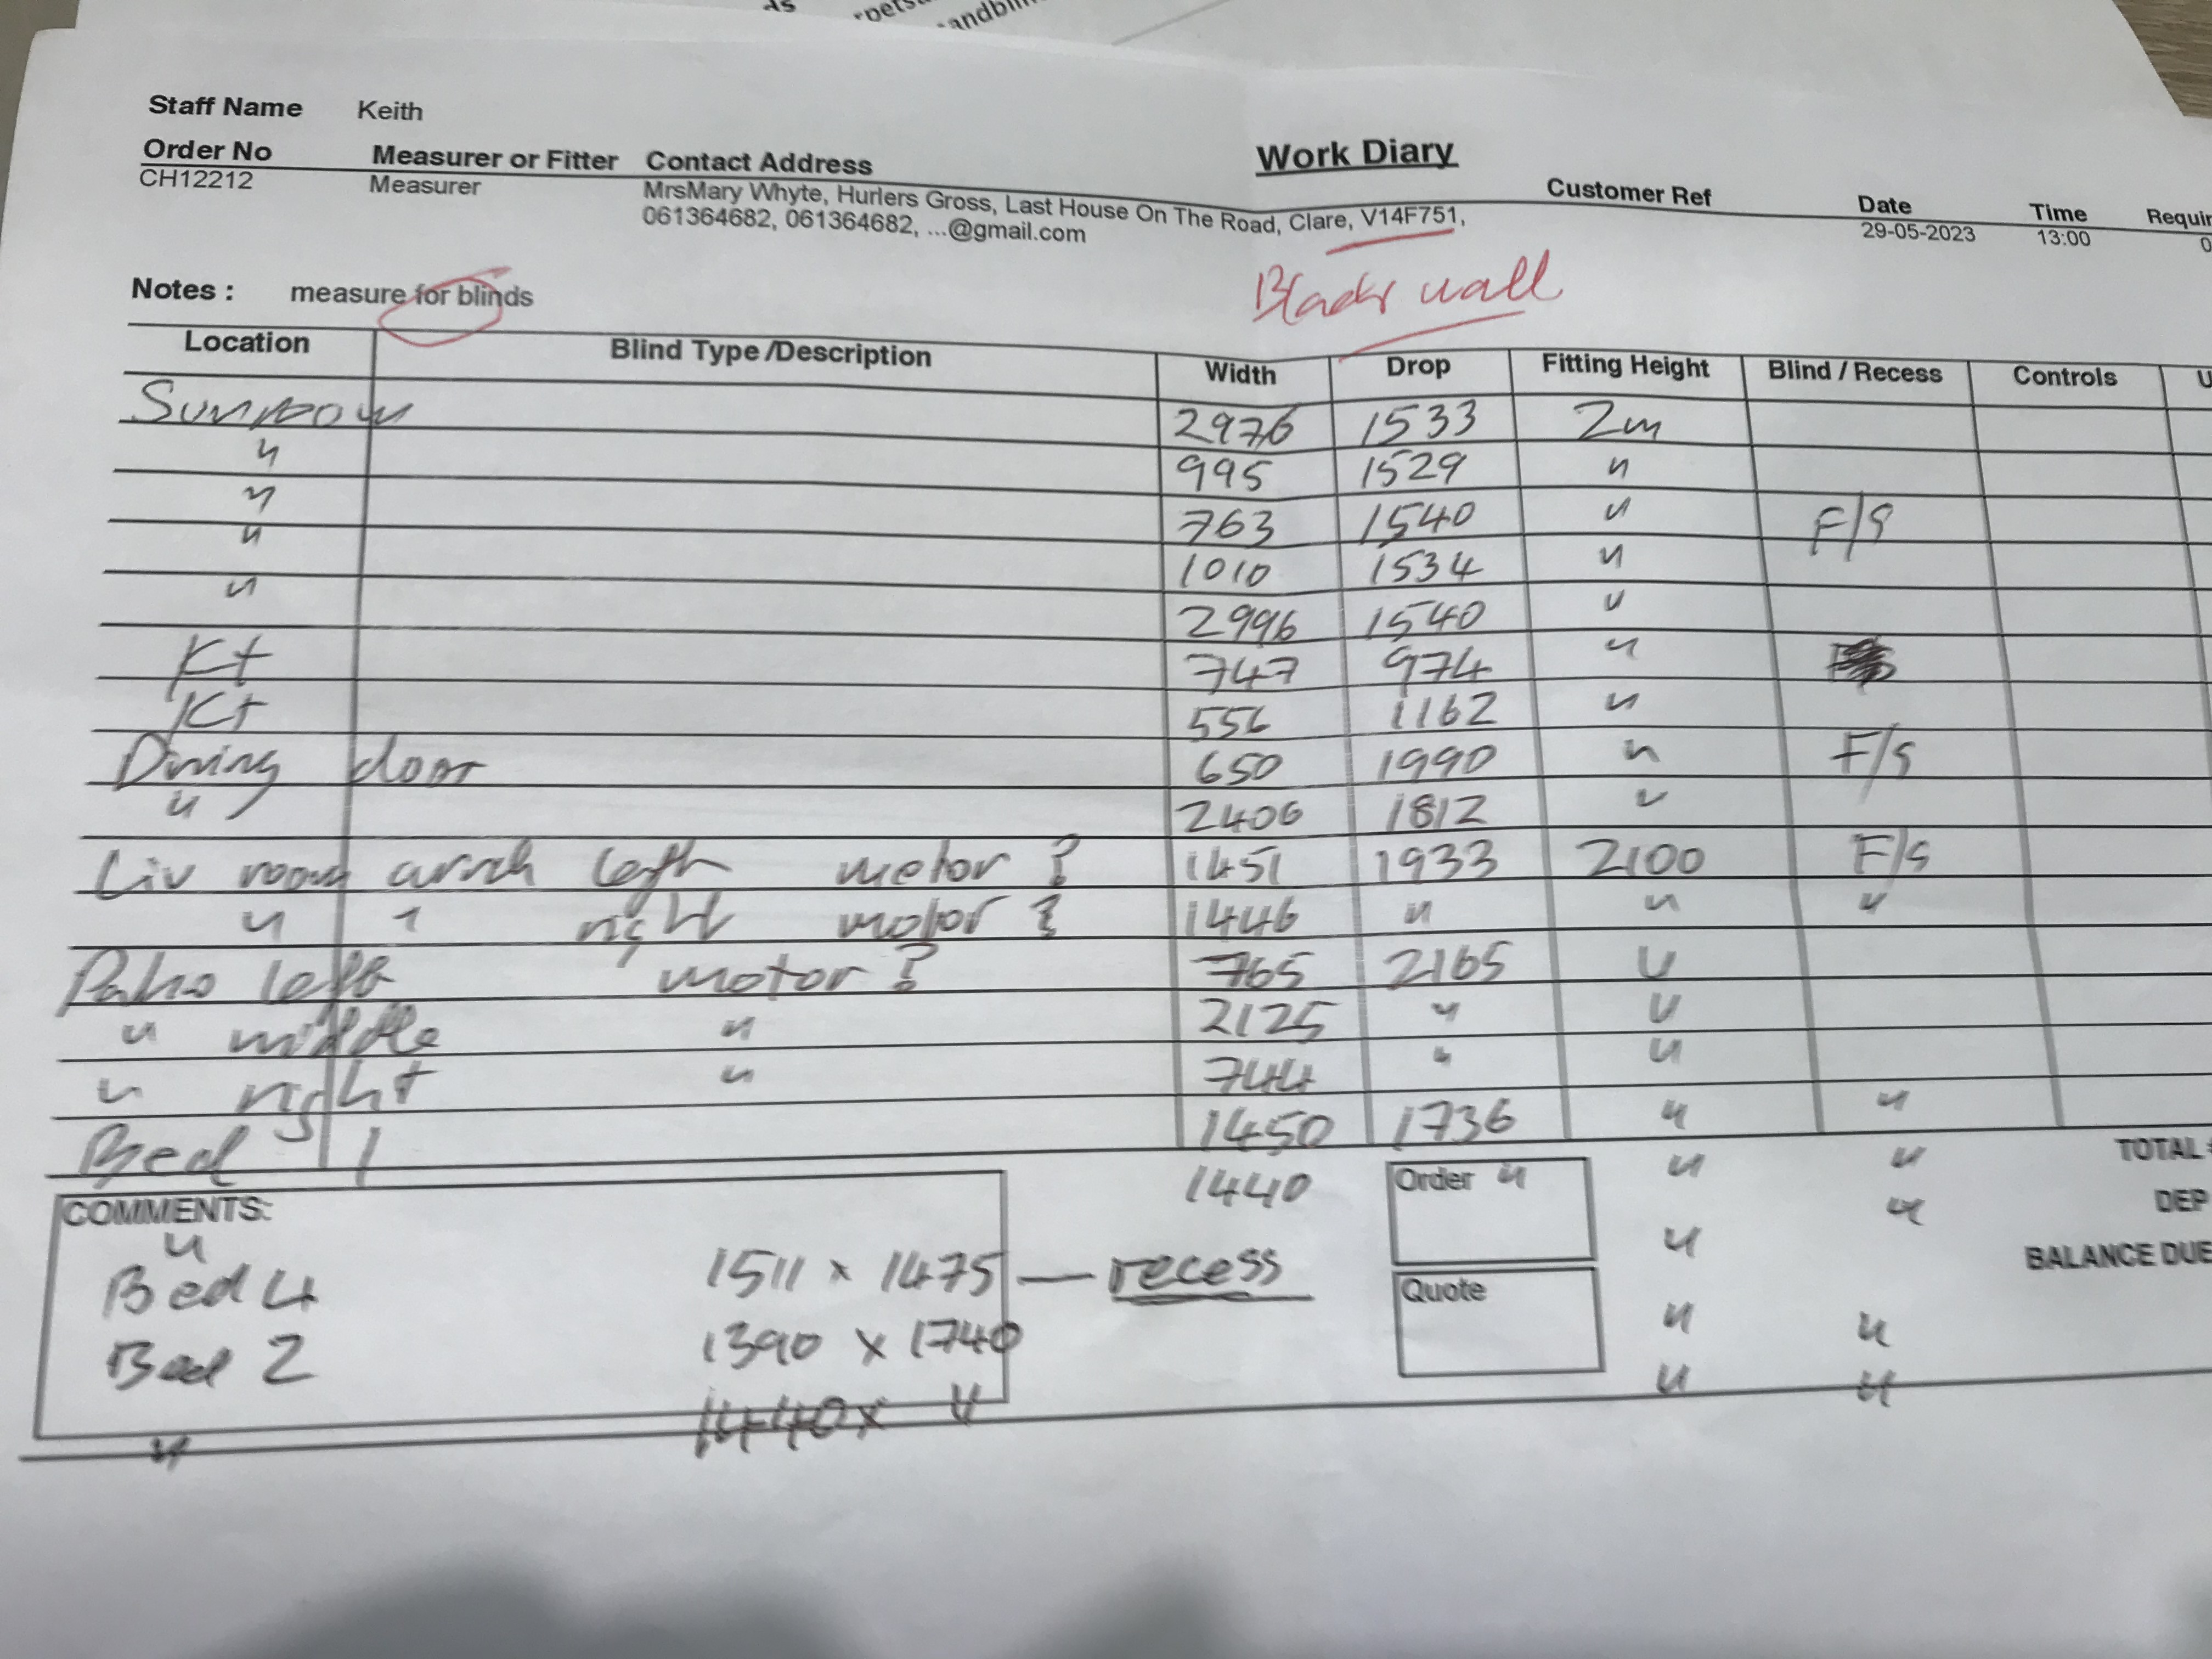 andbli
Staff Name Keith
Work Diary
Order No Measurer or Fitter Contact Address Customer Ref Date Time Requir
CH12212 Measurer MrsMary Whyte, Hurlers Gross, Last House On The Road, Clare, V14F751, 29-05-2023 13:00 0
061364682, 061364682, ...@gmail.com
Notes : measure for blinds wall
Location Blind Type /Description Width Drop Fitting Height Blind / Recess Controls U
Sunroom 2976 1533 2m
" 995 1529 "
" 763 1540 " F/S
" 1010 1534 "
" 2996 1540 "
Kt 747 974 "
Kt 556 1162 "
Dining door 650 1990 " F/S
" 2406 1812 "
Liv room arch left motor ? 1451 1933 2100 F/S
" " right motor ? 1446 " " "
Patio left motor ? 765 2165 "
" middle " 2125 " "
" right " 744 " "
Bed 1 1450 1736 " "
1440 " " "
COMMENTS: Order TOTAL
" DEP
Bed 4 1511 x 1475 — recess " "
BALANCE DUE
Quote
Bed 2 1390 x 1740 " "
" 1440 x " " "